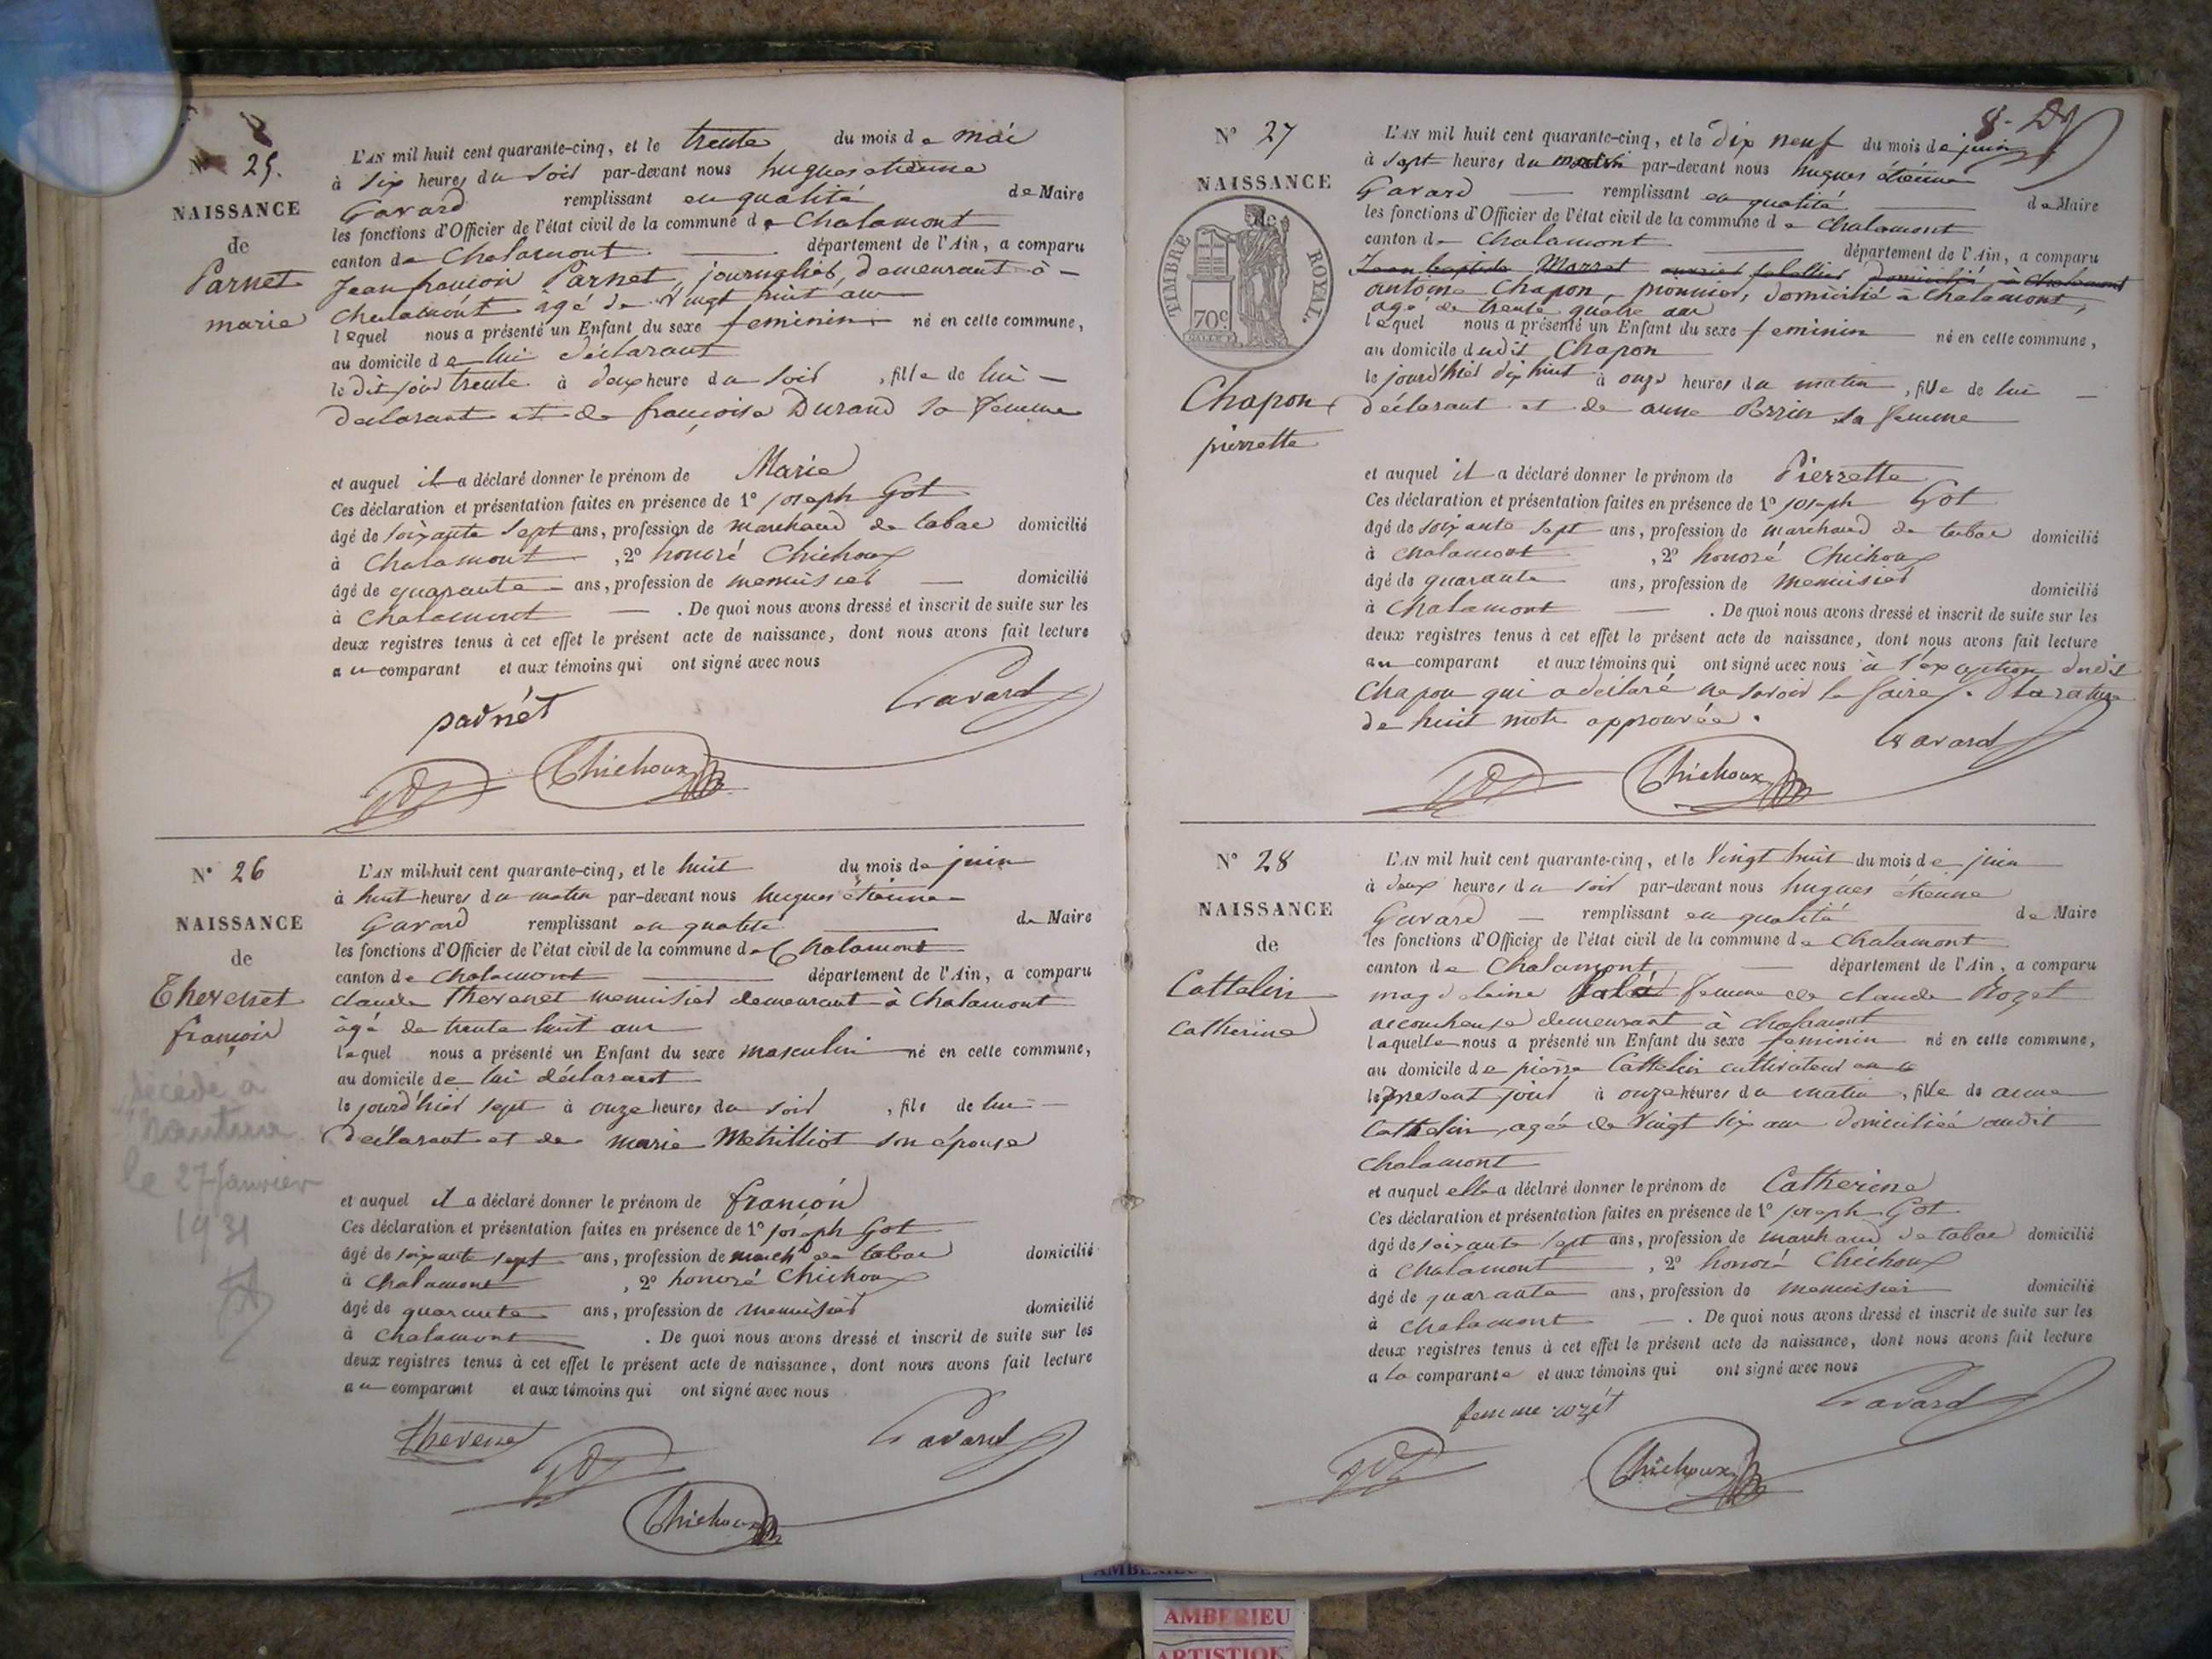 N° 25.
NAISSANCE
de
Parnet
marie
L'AN mil huit cent quarante-cinq, et le trente du mois de mai
à six heures du soir par-devant nous hugues etienne
Gavard remplissant en qualité de Maire
les fonctions d'Officier de l'état civil de la commune de Chalamont
canton de Chalamont département de l'Ain, a comparu
Jean françois Parnet, journalier, demeurant à
Chalamont âgé de Vingt huit ans
lequel nous a présenté un Enfant du sexe feminin né en cette commune,
au domicile de lui déclarant
le dit jour trente à deux heure du soir, fille de lui
declarant et de françoise Durand sa femme
et auquel il a déclaré donner le prénom de Marie
Ces déclaration et présentation faites en présence de 1° joseph Got
âgé de soixante sept ans, profession de marchand de tabac domicilié
à Chalamont, 2° honoré Chichoux
âgé de quarante ans, profession de menuisier domicilié
à Chalamont. De quoi nous avons dressé et inscrit de suite sur les
deux registres tenus à cet effet le présent acte de naissance, dont nous avons fait lecture
au comparant et aux témoins qui ont signé avec nous
parnét Gavard
Chichoux
N° 26
NAISSANCE
de
Thevenet
françois
décédé à
Nantua
le 27 Janvier
1931
L'AN mil huit cent quarante-cinq, et le huit du mois de juin
à huit heures du matin par-devant nous hugues étienne
Gavard remplissant en qualité de Maire
les fonctions d'Officier de l'état civil de la commune de Chalamont
canton de Chalamont département de l'Ain, a comparu
claude thevenet menuisier demeurant à Chalamont
âgé de trente huit ans
lequel nous a présenté un Enfant du sexe masculin né en cette commune,
au domicile de lui déclarant
le jourd'hier sept à onze heures du soir, fils de lui
declarant et de marie Metrilliot son épouse
et auquel il a déclaré donner le prénom de françois
Ces déclaration et présentation faites en présence de 1° joseph Got
âgé de soixante sept ans, profession de march^d de tabac domicilié
à Chalamont, 2° honoré Chichoux
âgé de quarante ans, profession de menuisier domicilié
à Chalamont. De quoi nous avons dressé et inscrit de suite sur les
deux registres tenus à cet effet le présent acte de naissance, dont nous avons fait lecture
au comparant et aux témoins qui ont signé avec nous
thevenet Gavard
Chichoux
N° 27
NAISSANCE
TIMBRE ROYAL.
70c
Chapon
pierrette
L'AN mil huit cent quarante-cinq, et le dix neuf du mois de juin
à sept heures du matin par-devant nous hugues étienne
Gavard remplissant en qualité de Maire
les fonctions d'Officier de l'état civil de la commune de Chalamont
canton de Chalamont département de l'Ain, a comparu
Jean baptiste domicilié à Chalamont
antoine Chapon, pionnier, domicilié à Chalamont,
agé de trente quatre ans
lequel nous a présenté un Enfant du sexe feminin né en cette commune,
au domicile dudit Chapon
le jourd'hier dix huit à onze heures du matin, fille de lui
déclarant et de anne Perrin sa femme
et auquel il a déclaré donner le prénom de Pierrette
Ces déclaration et présentation faites en présence de 1° joseph Got
âgé de soixante sept ans, profession de marchand de tabac domicilié
à chalamont, 2° honoré Chichoux
âgé de quarante ans, profession de menuisier domicilié
à Chalamont. De quoi nous avons dressé et inscrit de suite sur les
deux registres tenus à cet effet le présent acte de naissance, dont nous avons fait lecture
au comparant et aux témoins qui ont signé avec nous à l'exception dudit
Chapon qui a déclaré ne savoir le faire. la rature
de huit mots approuvée.
Gavard
Chichoux
N° 28
NAISSANCE
de
Cattelin
Catherine
L'AN mil huit cent quarante-cinq, et le Vingt huit du mois de juin
à deux heures du soir par-devant nous hugues étienne
Gavard remplissant en qualité de Maire
les fonctions d'Officier de l'état civil de la commune de Chalamont
canton de Chalamont département de l'Ain, a comparu
magdeleine femme de claude Rozet
accoucheuse demeurant à chalamont
laquelle nous a présenté un Enfant du sexe feminin né en cette commune,
au domicile de pierre Cattelin cultivateur
le present jour à onze heures du matin, fille de anne
Cattelin, agée de Vingt six ans domiciliée audit
Chalamont
et auquel elle a déclaré donner le prénom de Catherine
Ces déclaration et présentation faites en présence de 1° joseph Got
âgé de soixante sept ans, profession de marchand de tabac domicilié
à Chalamont, 2° honoré Chichoux
âgé de quarante ans, profession de menuisier domicilié
à Chalamont. De quoi nous avons dressé et inscrit de suite sur les
deux registres tenus à cet effet le présent acte de naissance, dont nous avons fait lecture
a la comparante et aux témoins qui ont signé avec nous
femme rozét Gavard
Chichoux
AMBERIEU
AMBERIEU